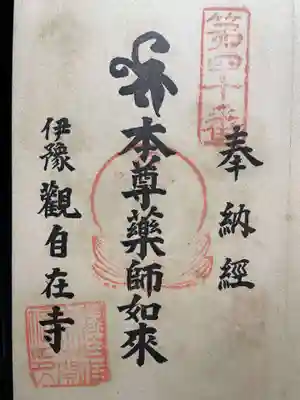 第四十番
奉納経
本尊藥師如來
伊豫觀自在寺